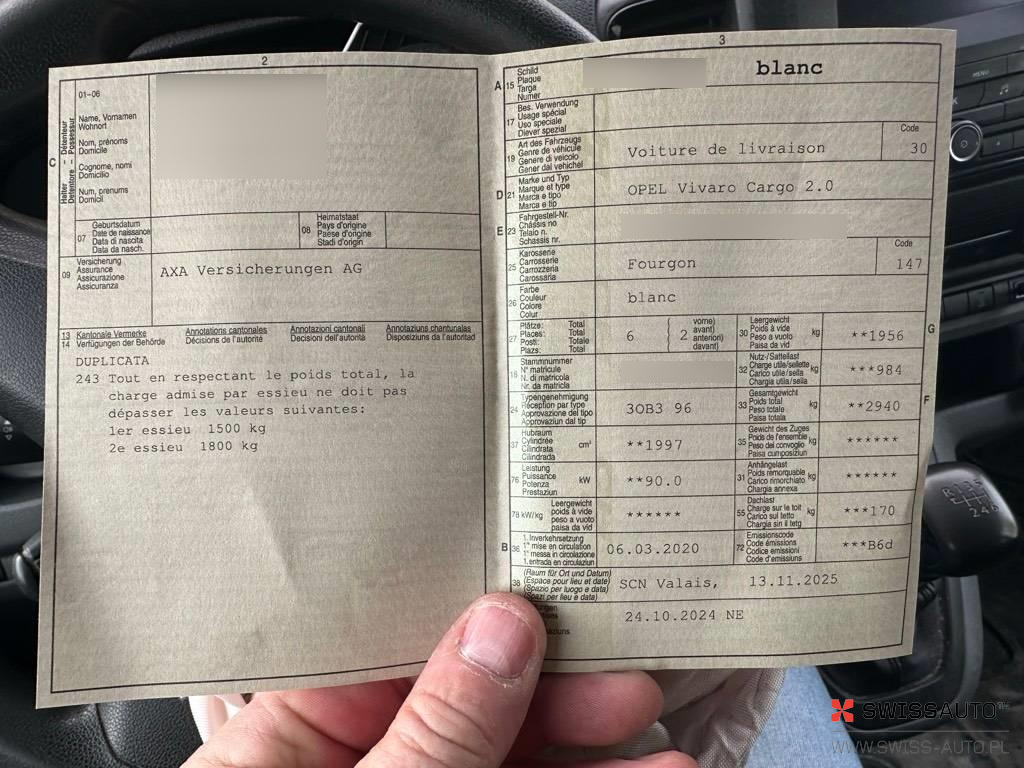 2
01-06
Name, Vornamen
Wohnort
Nom, prénoms
Domicile
Cognome, nomi
Domicilio
Num, prenums
Domicil
C
Halter – Détenteur
Detentore – Possessur
07
Geburtsdatum
Date de naissance
Data di nascita
Data da nasch.
08
Heimatstaat
Pays d'origine
Paese d'origine
Stadi d'origin
09
Versicherung
Assurance
Assicurazione
Assicuranza
AXA Versicherungen AG
13
14
Kantonale Vermerke
Verfügungen der Behörde
Annotations cantonales
Décisions de l'autorité
Annotazioni cantonali
Decisioni dell'autorità
Annotaziuns chantunalas
Disposiziuns da l'autoritad
DUPLICATA
243 Tout en respectant le poids total, la
charge admise par essieu ne doit pas
dépasser les valeurs suivantes:
1er essieu 1500 kg
2e essieu 1800 kg
3
A
15
Schild
Plaque
Targa
Numer
blanc
17
Bes. Verwendung
Usage spécial
Uso speciale
Diever spezial
19
Art des Fahrzeugs
Genre de véhicule
Genere di veicolo
Gener dal vehichel
Voiture de livraison
Code
30
D
21
Marke und Typ
Marque et type
Marca e tipo
Marca e tip
OPEL Vivaro Cargo 2.0
E
23
Fahrgestell-Nr.
Châssis no
Telaio n.
Schassis nr.
25
Karosserie
Carrosserie
Carrozzeria
Carossaria
Fourgon
Code
147
26
Farbe
Couleur
Colore
Colur
blanc
27
Plätze: Total
Places: Total
Posti: Totale
Plazs: Total
6
2
vorne)
avant)
anteriori)
davant)
30
Leergewicht
Poids à vide
Peso a vuoto
Paisa da vid
kg
**1956
G
18
Stammnummer
N° matricule
N. di matricola
Nr. da matricla
32
Nutz-/Sattellast
Charge utile/sellette
Carico utile/sella
Chargia utila/sella
kg
***984
24
Typengenehmigung
Réception par type
Approvazione del tipo
Approvaziun dal tip
3OB3 96
33
Gesamtgewicht
Poids total
Peso totale
Paisa totala
kg
**2940
F
37
Hubraum
Cylindrée
Cilindrata
Cilindrada
cm³
**1997
35
Gewicht des Zuges
Poids de l'ensemble
Peso del convoglio
Paisa cumposiziun
kg
******
76
Leistung
Puissance
Potenza
Prestaziun
kW
**90.0
31
Anhängelast
Poids remorquable
Carico rimorchiato
Chargia annexa
kg
******
78 kW/kg
Leergewicht
poids à vide
peso a vuoto
paisa da vid
******
55
Dachlast
Charge sur le toit
Carico sul tetto
Chargia sin il tetg
kg
***170
B
36
1. Inverkehrsetzung
1re mise en circulation
1a messa in circolazione
1. entrada en circulaziun
06.03.2020
72
Emissionscode
Code émissions
Codice emissioni
Code d'emissiuns
***B6d
38
(Raum für Ort und Datum)
(Espace pour lieu et date)
(Spazio per luogo e data)
(Spazi per lieu e data)
SCN Valais, 13.11.2025
24.10.2024 NE
MENU
SWISSAUTO
WWW.SWISS-AUTO.PL